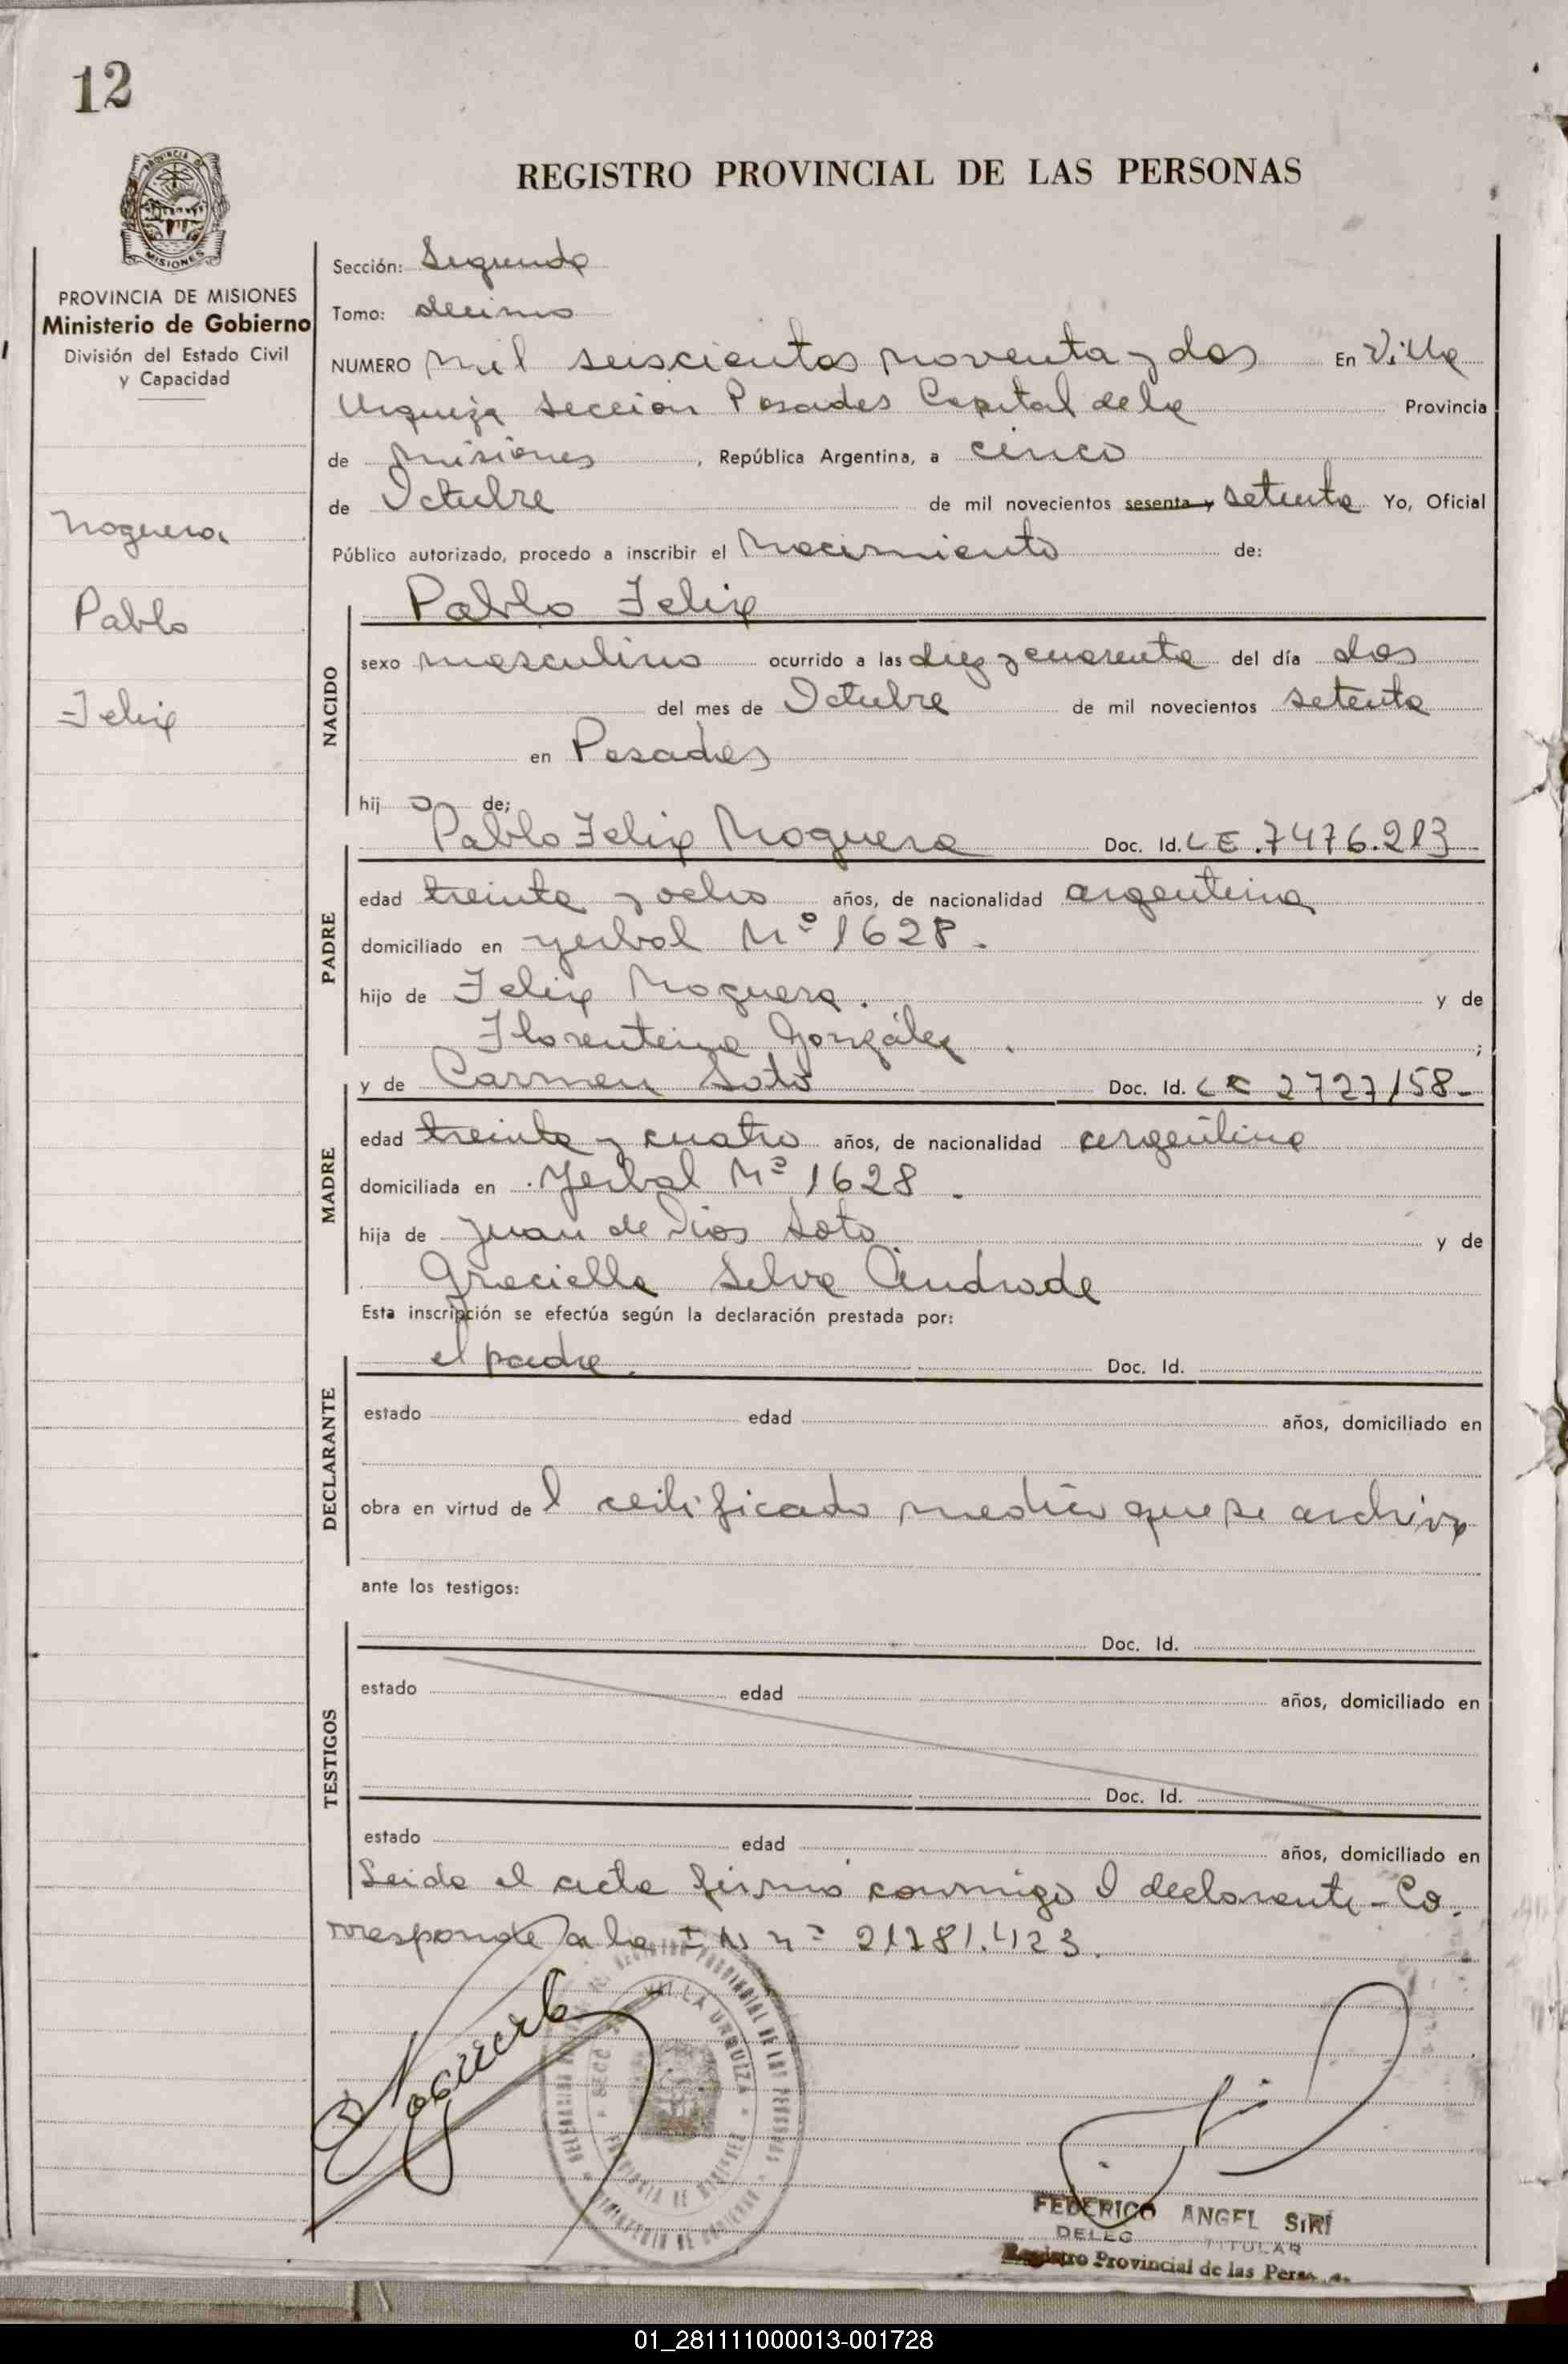 12
PROVINCIA DE
MISIONES
REGISTRO PROVINCIAL DE LAS PERSONAS
PROVINCIA DE MISIONES
Ministerio de Gobierno
División del Estado Civil
y Capacidad
Noguera
Pablo
Felix
Sección: Segunda
Tomo: decimo
NUMERO mil seiscientos noventa y dos En Villa
Urquiza seccion Posadas Capital de la Provincia
de Misiones, República Argentina, a cinco
de Octubre de mil novecientos sesenta y setenta Yo, Oficial
Público autorizado, procedo a inscribir el Nacimiento de:
Pablo Felix
NACIDO
sexo masculino ocurrido a las diez y cuarenta del día dos
del mes de Octubre de mil novecientos setenta
en Posadas
hij o de;
Pablo Felix Noguera Doc. Id. LE.7476.213
PADRE
edad treinta y ocho años, de nacionalidad argentina
domiciliado en yerbal Nº 1628.
hijo de Felix Noguera. y de
Florentina González.;
y de Carmen Soto Doc. Id. LC 2727158-
MADRE
edad treinta y cuatro años, de nacionalidad argentina
domiciliada en Yerbal Nº 1628.
hija de Juan de Dios Soto y de
Graciella Selva Andrade
Esta inscripción se efectúa según la declaración prestada por:
el padre. Doc. Id.
DECLARANTE
estado edad años, domiciliado en
obra en virtud de l certificado medico que se archiva
ante los testigos:
Doc. Id.
TESTIGOS
estado edad años, domiciliado en
Doc. Id.
estado edad años, domiciliado en
Leida el acta firmó conmigo el declarante-Co.
rresponde a la IN nº 21781.423.
Noguera
REGISTRO PROVINCIAL DE LAS PERSONAS
VILLA URQUIZA
PROVINCIA DE MISIONES
MINISTERIO DE GOBIERNO
FEDERICO ANGEL SIRI
DELEG TITULAR
Registro Provincial de las Perso
01_281111000013-001728